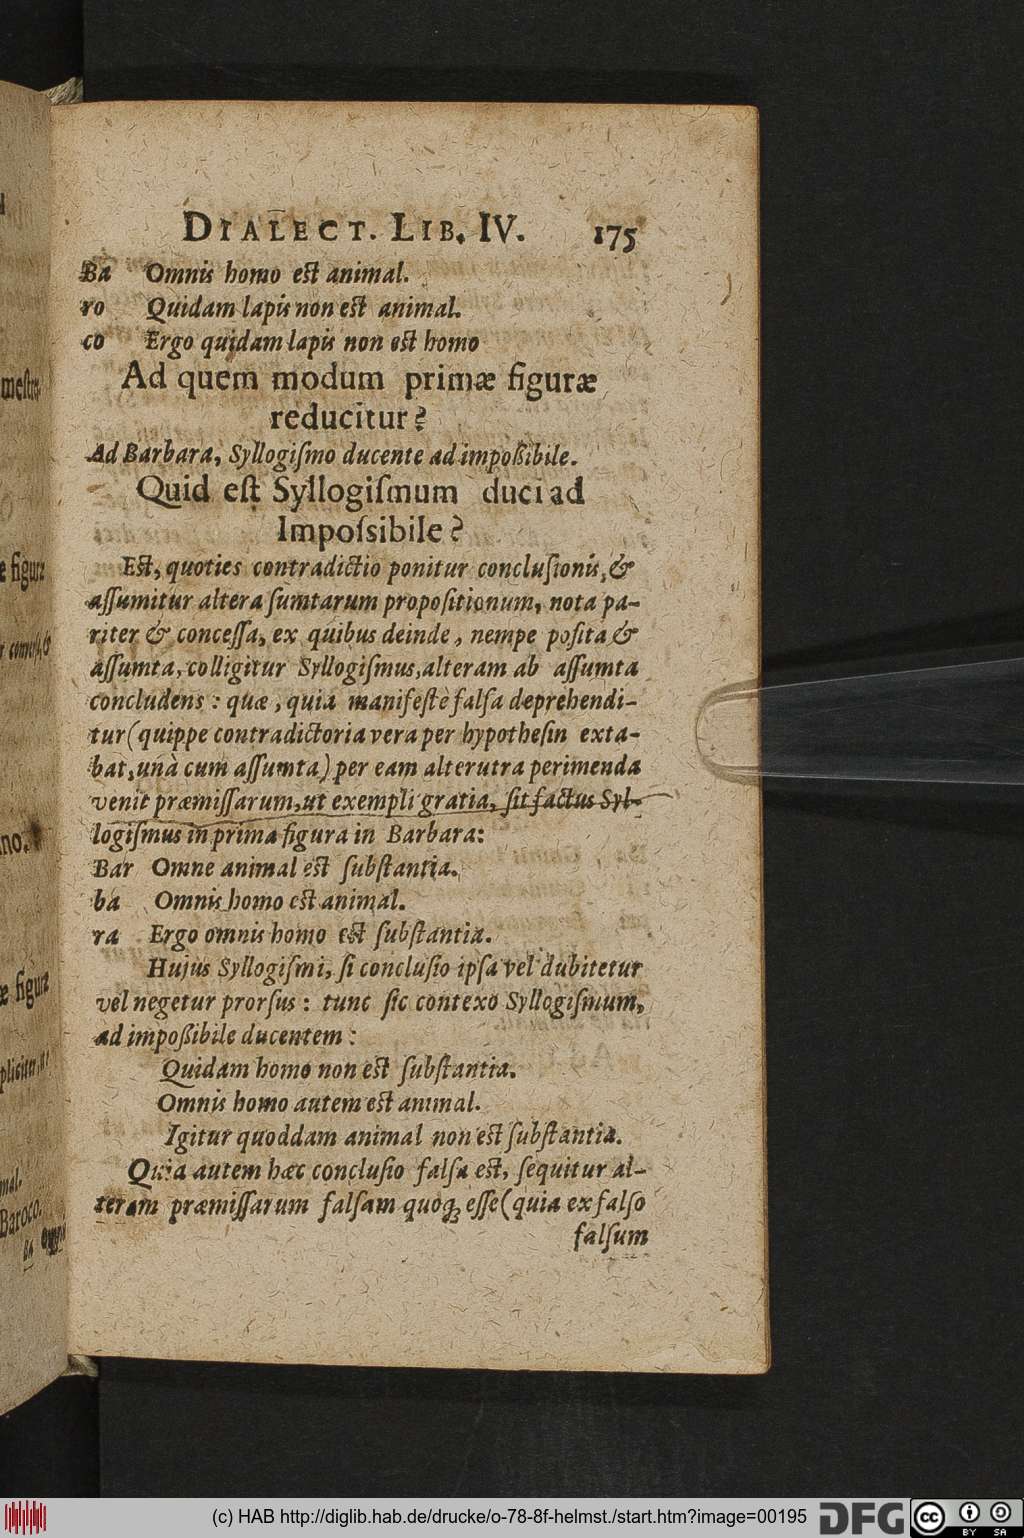 DIALECT. LIB. IV. 175
Ba Omnis homo est animal.
ro Quidam lapis non est animal.
co Ergo quidam lapis non est homo
Ad quem modum primæ figuræ
reducitur?
Ad Barbara, Syllogiſmo ducente ad impoßibile.
Quid eſt Syllogiſmum duci ad
Impoſsibile?
Eſt, quoties contradictio ponitur concluſionis, &
aſſumitur altera ſumtarum propoſitionum, nota pa-
riter & conceſſa, ex quibus deinde, nempe poſita &
aſſumta, colligitur Syllogiſmus, alteram ab aſſumta
concludens: quæ, quia manifeſtè falſa deprehendi-
tur (quippe contradictoria vera per hypotheſin exta-
bat, unà cum aſſumta) per eam alterutra perimenda
venit præmiſſarum, ut exempli gratia, ſit factus Syl-
logiſmus in prima figura in Barbara:
Bar Omne animal eſt ſubſtantia.
ba Omnis homo eſt animal.
ra Ergo omnis homo eſt ſubſtantia.
Hujus Syllogiſmi, ſi concluſio ipſa vel dubitetur
vel negetur prorſus: tunc ſic contexo Syllogiſmum,
ad impoßibile ducentem:
Quidam homo non eſt ſubſtantia.
Omnis homo autem eſt animal.
Igitur quoddam animal non eſt ſubſtantia.
Quia autem hæc concluſio falſa eſt, ſequitur al-
teram præmiſſarum falſam quoq; eſſe (quia ex falſo
falſum
(c) HAB http://diglib.hab.de/drucke/o-78-8f-helmst./start.htm?image=00195
DFG
cc BY SA